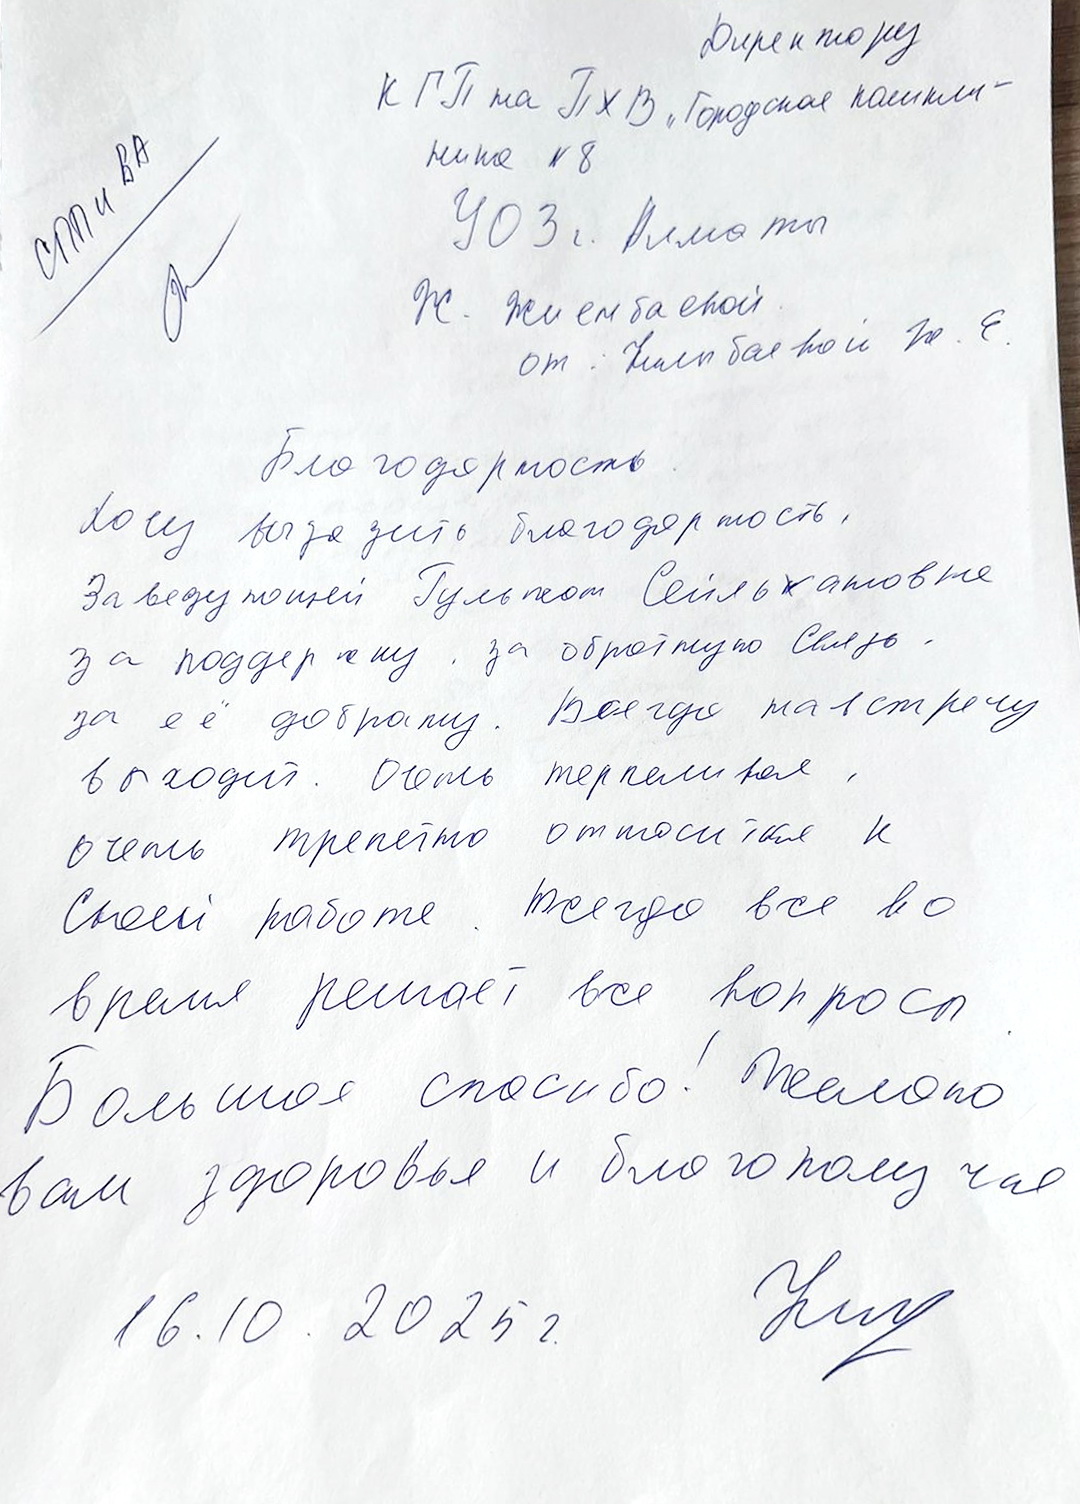 Директору
КГП на ПХВ „Городская поликли-
ника №8
УОЗ г. Алматы
Ж. Жиембаевой
от: Ж. Е.
СПП и ВА
Благодарность
Хочу выразить благодарность,
Заведующей Гульжан Сейльхановне
за поддержку, за обратную связь,
за её доброту. Всегда навстречу
выходит. Очень терпеливая,
очень трепетно относится к
своей работе. Всегда все во
время решает все вопросы.
Большое спасибо! Желаю
вам здоровья и благополучия
16.10.2025 г.